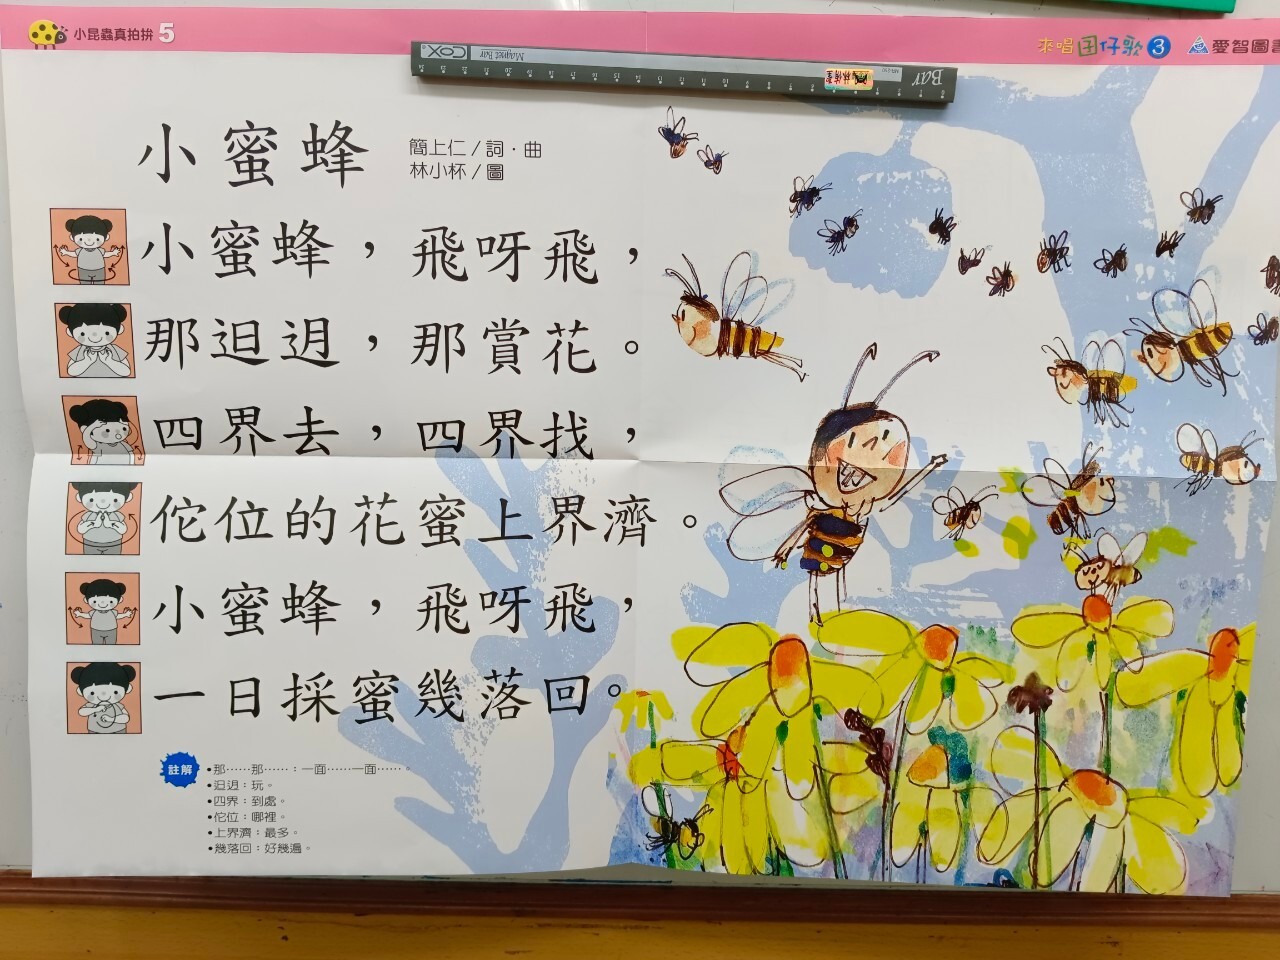 小昆蟲真拍拚 5
來唱囝仔歌 3 愛智圖書
COX Magnet Bar
Bar
小蜜蜂
簡上仁/詞·曲
林小杯/圖
小蜜蜂,飛呀飛,
那𨑨迌,那賞花。
四界去,四界找,
佗位的花蜜上界濟。
小蜜蜂,飛呀飛,
一日採蜜幾落回。
註解
•那……那……:一面……一面……。
•𨑨迌:玩。
•四界:到處。
•佗位:哪裡。
•上界濟:最多。
•幾落回:好幾遍。